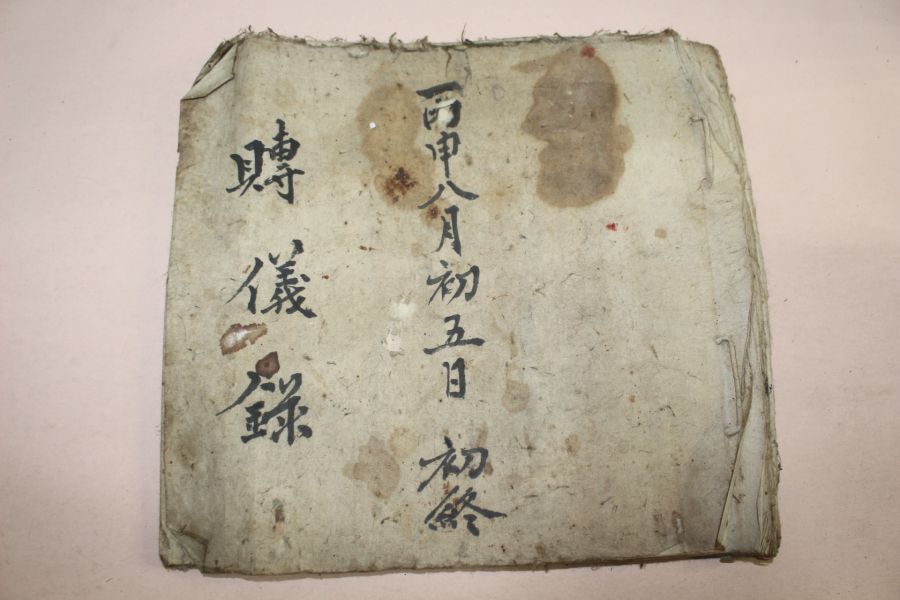 丙申八月初五日 初終
賻儀錄